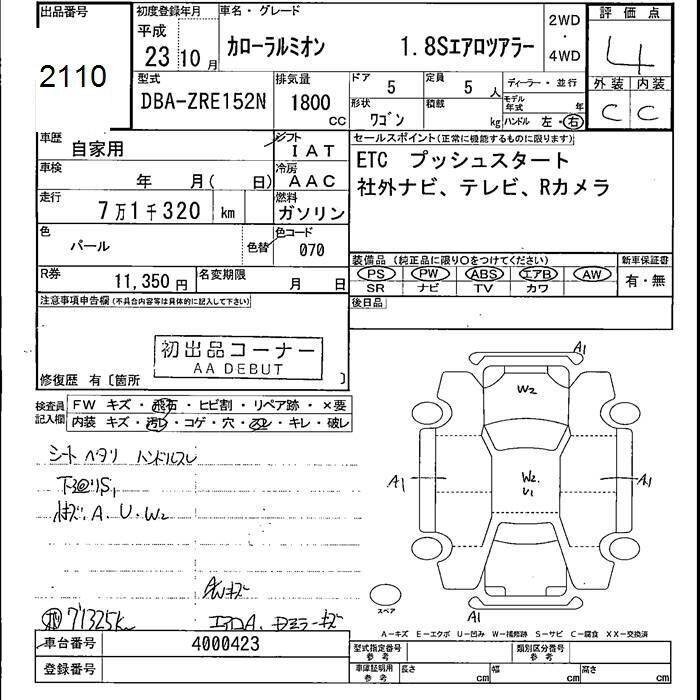 出品番号
2110
初度登録年月
平成
23 10 月
車名・グレード
カローラルミオン 1.8Sエアロツアラー
2WD
・
4WD
評価点
4
外装 内装
C C
型式
DBA-ZRE152N
排気量
1800
CC
ドア
5
定員
5 人
形状
ワゴン
積載
kg
ディーラー・並行
モデル年式 年
ハンドル 左・右
車歴
自家用
シフト
IAT
車検
年 月( 日)
冷房
AAC
走行
7万1千320 km
燃料
ガソリン
色
パール
色替
色コード
070
R券
11,350円
名変期限
月 日
セールスポイント(正常に機能するものに限ります)
ETC プッシュスタート
社外ナビ、テレビ、Rカメラ
装備品 (純正品に限り○をつけてください)
PS PW ABS エアB AW
SR ナビ TV カワ
新車保証書
有・無
後日品
注意事項申告欄(不具合内容等は具体的に記入して下さい)
初出品コーナー
AA DEBUT
修復歴 有〔箇所 〕
検査員
記入欄
FW キズ・飛石・ヒビ割・リペア跡・×要
内装 キズ・汚レ・コゲ・穴・スレ・キレ・破レ
シートヘタリ ハンドルスレ
下回りS1
キズ.A.U.W2
AWキズ
71325km
A1
W2
A1
W2
U1
A1
A1
スペア
A-キズ E-エクボ U-凹み W-補修跡 S-サビ C-腐食 XX-交換済
車台番号
4000423
登録番号
型式指定番号
参考
類別区分番号
参考
車庫証明用
参考
長さ cm 幅 cm 高さ cm